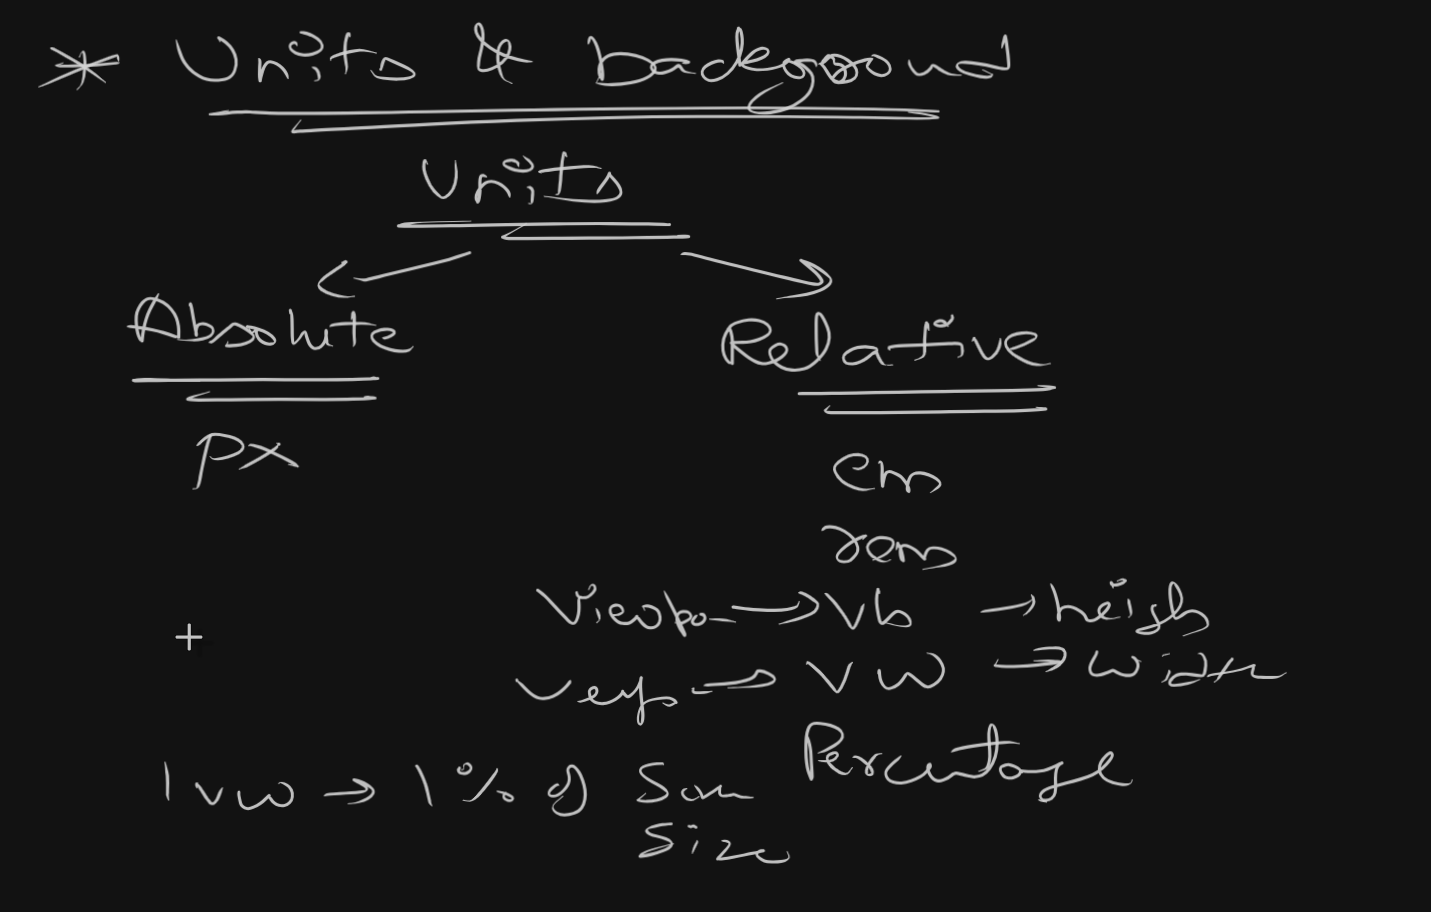 * Units & background
Units
Absolute
Relative
px
em
rem
Viewpo → vh → heigh
→ vw → width
Percentage
1 vw → 1% of
Size